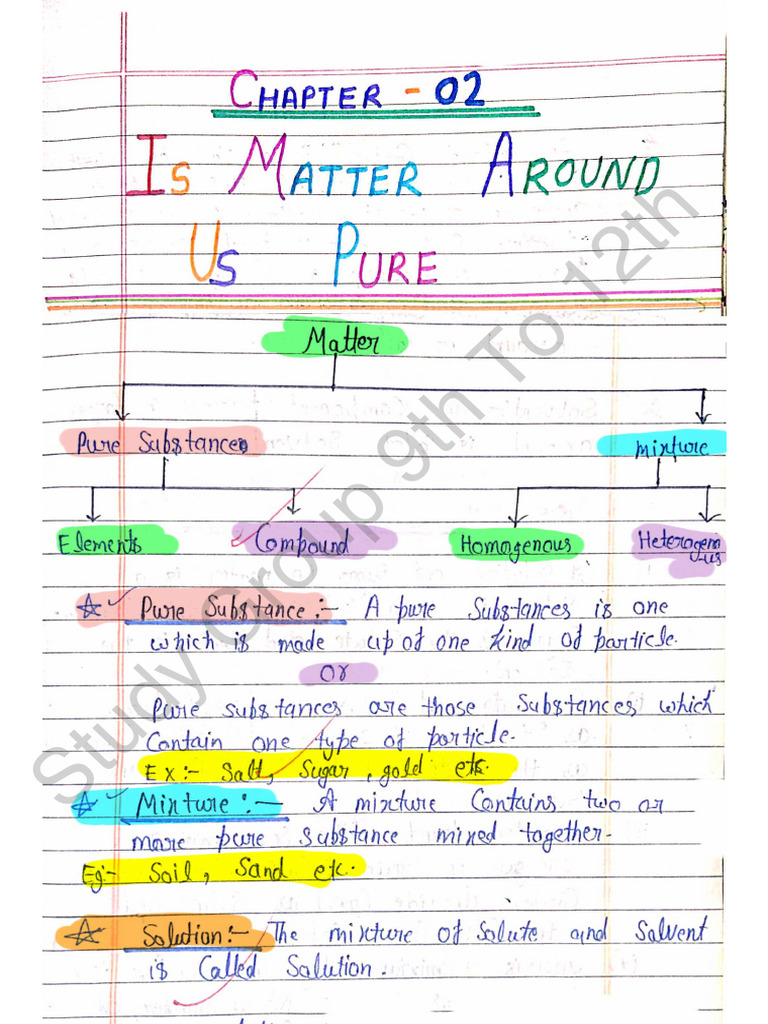 CHAPTER - 02
IS MATTER AROUND
US PURE
Matter
Pure Substances
mixture
Elements
Compound
Homogenous
Heterogeno
us
Pure Substance :- A pure Substances is one
which is made up of one kind of particle.
or
Pure substances are those Substances which
Contain one type of particle.
Ex:- Salt, Sugar, gold etc.
Mixture :- A mixture Contains two or
more pure substance mixed together.
Eg:- Soil, Sand etc.
Solution:- The mixture of Solute and Solvent
is Called Solution.
Study Group 9th To 12th